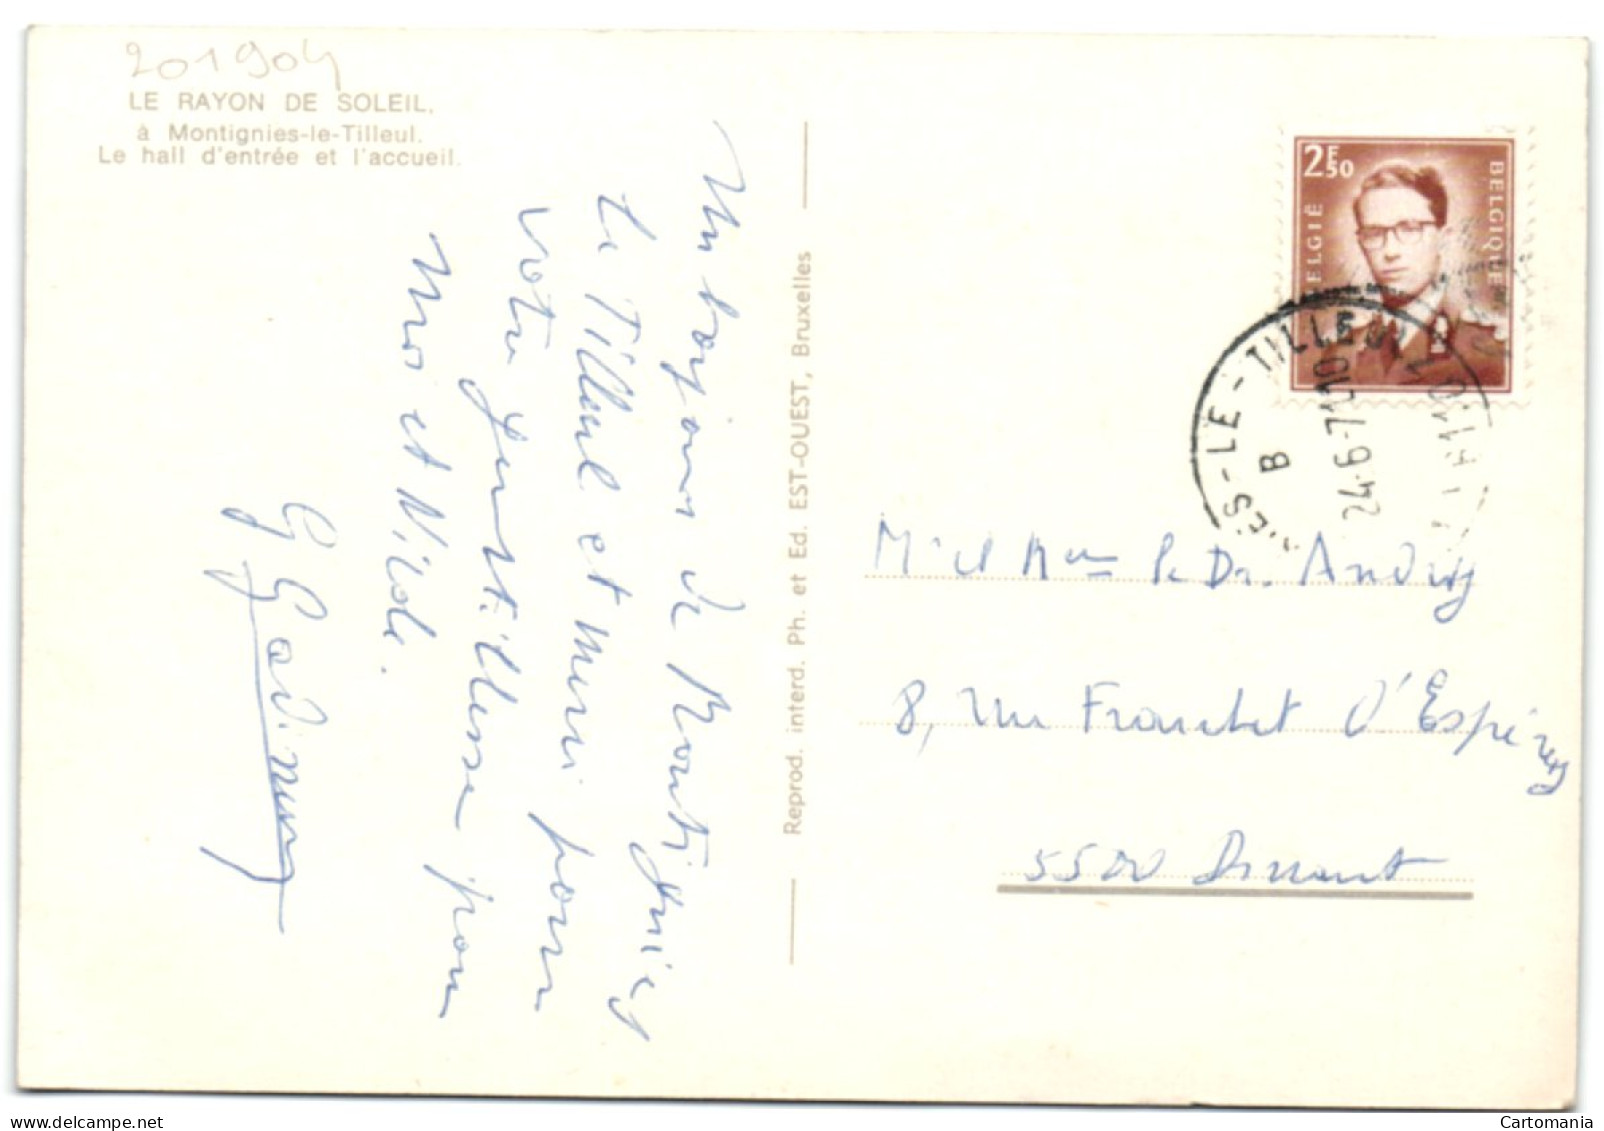 201904
LE RAYON DE SOLEIL.
à Montignies-le-Tilleul.
Le hall d'entrée et l'accueil.
Un bonjour de Montignies
Le Tilleul et merci pour
votre gentillesse pour
moi et Nicole.
Reprod. interd. Ph. et Ed. EST-OUEST, Bruxelles
2F50
BELGIQUE
BELGIË
ES-LE-TILLEUL
B
24-6-71-10
Mr et Mme le Dr. Andry
8, rue Franchet d'Espérey
5500 Dinant
Cartomania